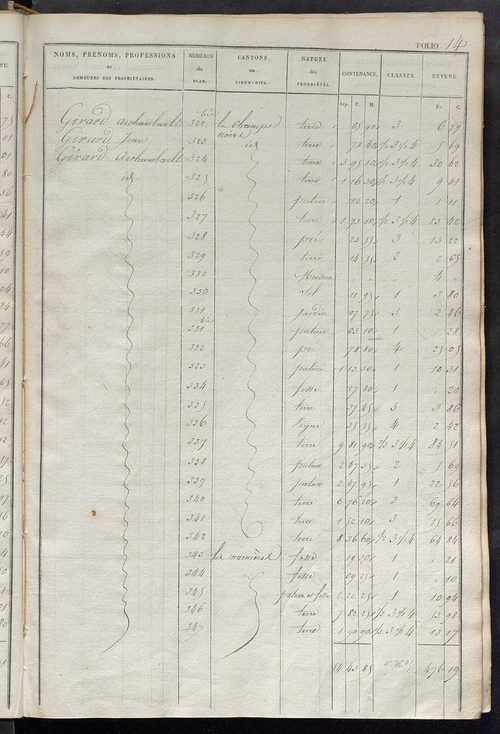 FOLIO 14
NOMS, PRÉNOMS, PROFESSIONS ET DEMEURES DES PROPRIÉTAIRES. NUMÉROS du PLAN. CANTONS OU LIEUX-DITS. NATURE des PROPRIÉTÉS. CONTENANCE. CLASSES. REVENU.
Arp. P. M. Fr. C.
Girard Archambault 322 bis le champ noire terre 65 90 3 6 79
Girard Jean 323 id terre 73 20 5 69
Girard Archambault 324 terre 3 95 10 30 62
id 325 terre 1 16 30 9 01
326 pature 12 20 1 1 11
327 terre 1 73 10 13 42
328 pré 23 55 3 13 22
329 terre 14 55 2 2 65
330 Maison 4
330 Sol 11 95 1 3 80
331 jardin 07 75 3 2 46
331 bis pature 03 10 1 28
332 pré 78 80 4 25 05
333 pature 1 13 30 1 10 31
334 fosse 17 80 1 20
335 terre 37 45 3 3 86
336 Vigne 35 55 4 2 42
337 terre 9 81 90 84 51
338 pature 2 47 35 2 5 69
339 pature 2 47 95 1 22 56
340 terre 6 76 20 3 69 64
341 terre 1 52 10 3 15 66
342 terre 8 36 60 64 84
343 les marnières fosse 19 30 1 21
344 id fosse 09 25 1 10
345 pature et fosse 1 20 25 1 10 94
346 terre 9 82 25 13 98
347 terre 1 70 90 13 17
54 43 85 476 19